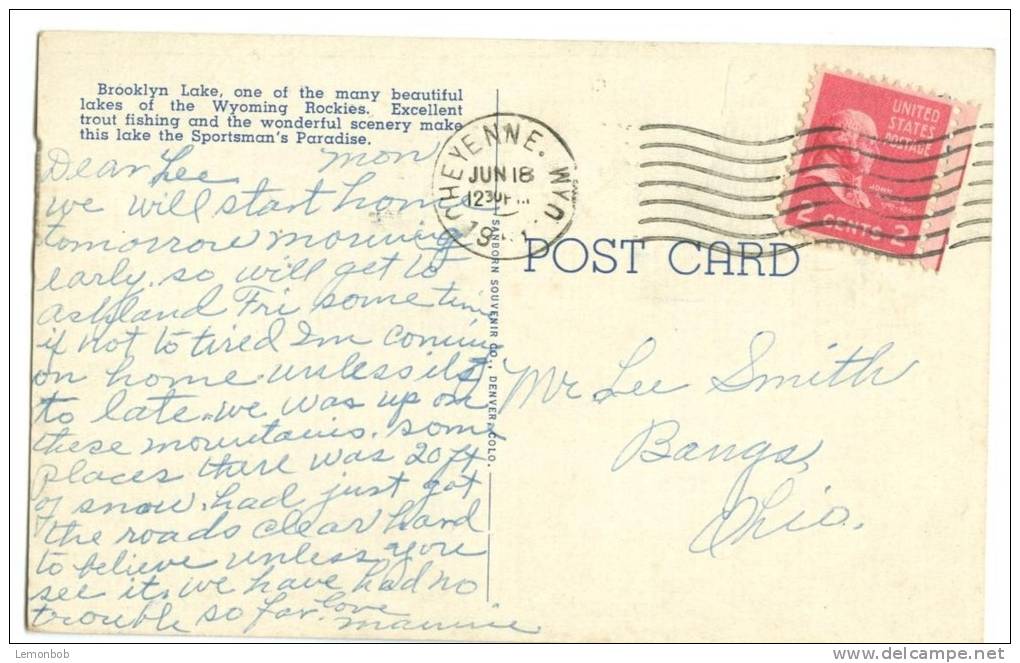 Brooklyn Lake, one of the many beautiful
lakes of the Wyoming Rockies. Excellent
trout fishing and the wonderful scenery make
this lake the Sportsman's Paradise.
Dear Lee Mon
we will start home
tomorrow morning
early. so will get to
ashland Fri some time
if not to tired Im coming
on home unless its
to late. we was up on
these mountains. some
places there was 20 ft
of snow. had just got
the roads clear hard
to believe unless you
see it. we have had no
trouble so far. love
mamie.
SANBORN SOUVENIR CO., DENVER, COLO.
CHEYENNE. WYO
JUN 18
12 30 PM
19
UNITED
STATES
POSTAGE
JOHN
2 CENTS 2
POST CARD
Mr Lee Smith
Bangs,
Ohio.
Lemonbob
delcampe.net